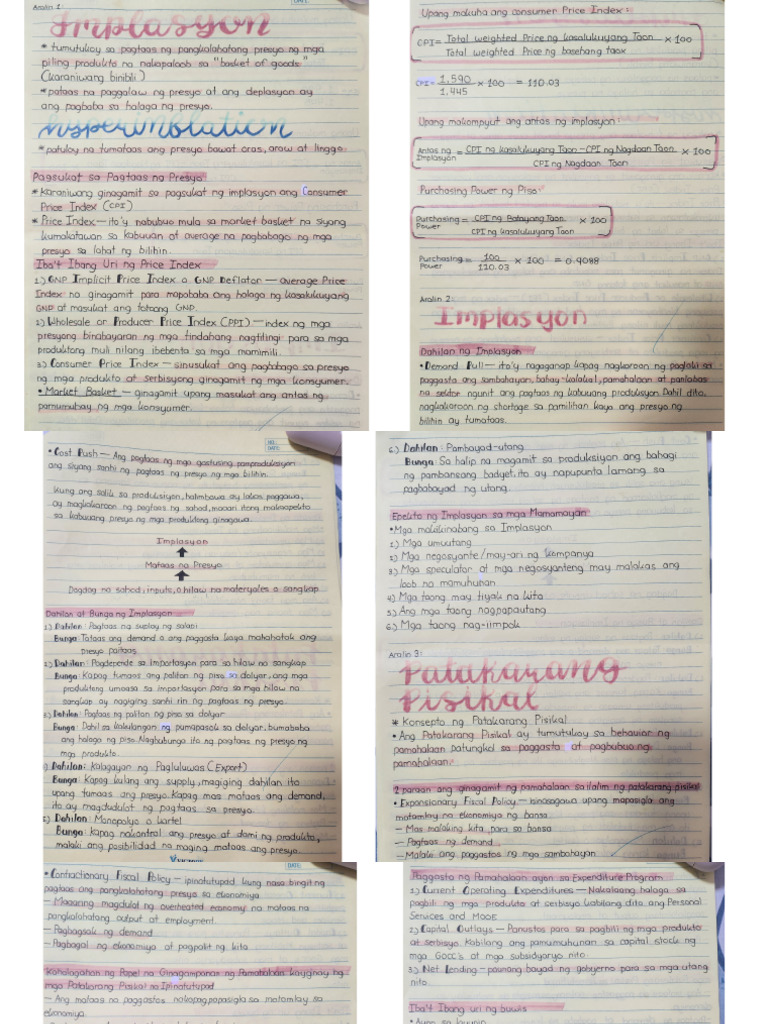 Aralin 1:
Implasyon
* tumutukoy sa pagtaas ng pangkalahatang presyo ng mga
piling produkto na nakapaloob sa "basket of goods"
(karaniwang binibli)
* pataas na paggalaw ng presyo at ang deplasyon ay
ang pagbaba sa halaga ng presyo.
hyperinflation
* patuloy na tumataas ang presyo bawat oras, araw at linggo.
Pagsukat sa Pagtaas ng Presyo
* karaniwang ginagamit sa pagsukat ng implasyon ang Consumer
Price Index (CPI)
* Price Index — ito'y nabubuo mula sa market basket na siyang
kumakatawan sa kabuuan at average na pagbabago ng mga
presyo sa lahat ng bilihin.
Iba't Ibang Uri ng Price Index
1.) GNP Implicit Price Index o GNP Deflator — average Price
Index na ginagamit para mapababa ang halaga ng kasalukuyang
GNP at masukat ang totoong GNP.
2.) Wholesale or Producer Price Index (PPI) — index ng mga
presyong binabayaran ng mga tindahang nagtitingi para sa mga
produktong muli nilang ibebenta sa mga mamimili.
3.) Consumer Price Index — sinusukat ang pagbabago sa presyo
ng mga produkto at serbisyong ginagamit ng mga konsyumer.
• Market Basket — ginagamit upang masukat ang antas ng
pamumuhay ng mga konsyumer.
Upang makuha ang consumer Price Index:
CPI = Total weighted Price ng kasalukuyang Taon × 100
Total weighted Price ng basehang taon
CPI = 1,590 × 100 = 110.03
1,445
Upang makompyut ang antas ng implasyon:
Antas ng Implasyon = CPI ng kasalukuyang Taon - CPI ng Nagdaan Taon × 100
CPI ng Nagdaan Taon
Purchasing Power ng Piso:
Purchasing Power = CPI ng Batayang Taon × 100
CPI ng kasalukuyang Taon
Purchasing Power = 100 × 100 = 0.9088
110.03
Aralin 2:
Implasyon
Dahilan ng Implasyon
• Demand Pull — ito'y nagaganap kapag nagkaroon ng paglaki sa
paggasta ang sambahayan, bahay-kalakal, pamahalaan at panlabas
na sektor ngunit ang pagtaas ng kabuuang produksyon. Dahil dito,
nagkakaroon ng shortage sa pamilihan kaya ang presyo ng
bilihin ay tumataas.
• Cost Push — Ang pagtaas ng mga gastusing pamproduksiyon
ang siyang sanhi ng pagtaas ng presyo ng mga bilihin.
Kung ang salik sa produksiyon, halimbawa ay lakas paggawa,
ay magkakaroon ng pagtaas ng sahod, maaari itong makaapekto
sa kabuuang presyo ng mga produktong ginagawa.
Implasyon
Mataas na Presyo
Dagdag na sahod, inputs, o hilaw na materyales o sangkap
Dahilan at Bunga ng Implasyon
1.) Dahilan: Pagtaas ng suplay ng salapi
Bunga: Tataas ang demand o ang paggasta kaya mahahatak ang
presyo paitaas.
2.) Dahilan: Pagdepende sa importasyon para sa hilaw na sangkap
Bunga: Kapag tumaas ang palitan ng piso sa dolyar, ang mga
produktong umaasa sa importasyon para sa mga hilaw na
sangkap ay nagiging sanhi rin ng pagtaas ng presyo.
3.) Dahilan: Pagtaas ng palitan ng piso sa dolyar
Bunga: Dahil sa kakulangan ng pumapasok sa dolyar, bumababa
ang halaga ng piso. Nagbubunga ito ng pagtaas ng presyo ng
mga produkto.
4.) Dahilan: Kalagayan ng Pagluluwas (Export)
Bunga: Kapag kulang ang supply, magiging dahilan ito
upang tumaas ang presyo. Kapag mas mataas ang demand,
ito ay magdudulot ng pagtaas sa presyo.
5.) Dahilan: Monopolyo o kartel
Bunga: kapag nakontrol ang presyo at dami ng produkto,
malaki ang posibilidad na maging mataas ang presyo.
6.) Dahilan: Pambayad-utang
Bunga: Sa halip na magamit sa produksiyon ang bahagi
ng pambansang badyet, ito ay napupunta lamang sa
pagbabayad ng utang.
Epekto ng Implasyon sa mga Mamamayan
• Mga makikinabang sa Implasyon
1.) Mga umuutang
2.) Mga negosyante/may-ari ng kompanya
3.) Mga speculator at mga negosyanteng may malakas ang
loob na mamuhunan
4.) Mga taong may tiyak na kita
5.) Ang mga taong nagpapautang
6.) Mga taong nag-iimpok
Aralin 3:
Patakarang
Pisikal
* Konsepto ng Patakarang Pisikal
• Ang Patakarang Pisikal ay tumutukoy sa behavior ng
pamahalaan patungkol sa paggasta at pagbubuwis ng
pamahalaan.
2 paraan ang ginagamit ng pamahalaan sa ilalim ng patakarang pisikal
• Expansionary Fiscal Policy — isinasagawa upang mapasigla ang
matamlay na ekonomiya ng bansa.
— Mas malaking kita para sa bansa
— Pagtaas ng demand
— Malaki ang paggastos ng mga sambahayan
• Contractionary Fiscal Policy — ipinatutupad kung nasa bingit ng
pagtaas ang pangkalahatang presyo sa ekonomiya.
— Maaaring magdulot ng overheated economy na mataas na
pangkalahatang output at employment.
— Pagbagsak ng demand
— Pagbagal ng ekonomiya at pagpalit ng kita
Kahalagahan ng Papel na Ginagampanan ng Pamahalaan kaugnay ng
mga Patakarang Pisikal na Ipinatutupad
— Ang mataas na paggastos nakapagpapasigla sa matamlay sa
ekonomiya.
Paggasta ng Pamahalaan ayon sa Expenditure Program
1.) Current Operating Expenditures — Nakalaang halaga sa
pagbili ng mga produkto at serbisyo kabilang dito ang Personal
Services and MOOE
2.) Capital Outlays — Panustos para sa pagbili ng mga produkto
at serbisyo. Kabilang ang pamumuhunan sa capital stock ng
mga GOCC's at mga subsidyaryo nito.
3.) Net Lending — paunang bayad ng gobyerno para sa mga utang
nito.
Iba't Ibang uri ng buwis
• Ayon sa layunin